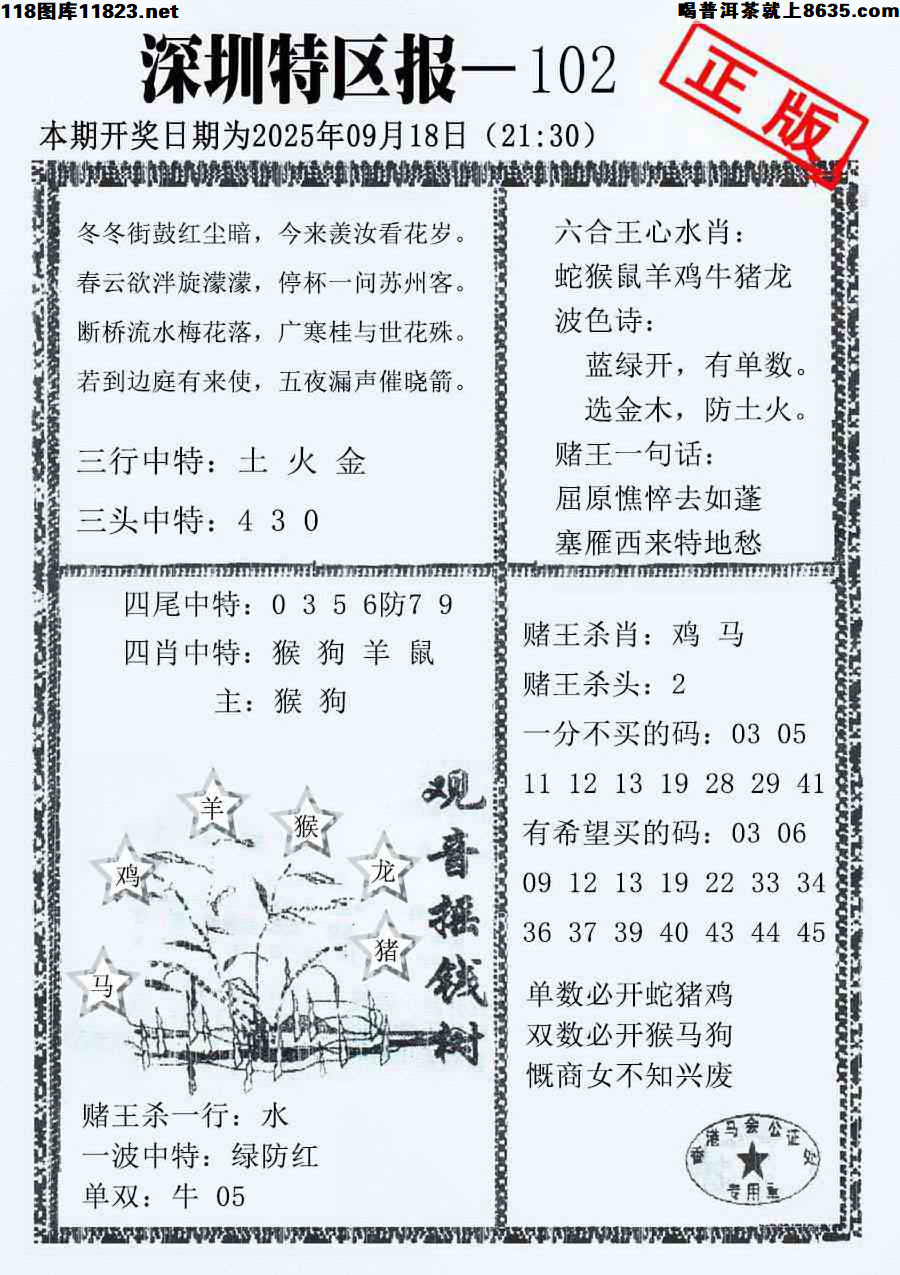 118图库11823.net
喝普洱茶就上8635.com
深圳特区报—102
正版
本期开奖日期为2025年09月18日（21:30）
冬冬街鼓红尘暗，今来羡汝看花岁。
春云欲泮旋濛濛，停杯一问苏州客。
断桥流水梅花落，广寒桂与世花殊。
若到边庭有来使，五夜漏声催晓箭。
三行中特：土 火 金
三头中特：4 3 0
六合王心水肖：
蛇猴鼠羊鸡牛猪龙
波色诗：
蓝绿开，有单数。
选金木，防土火。
赌王一句话：
屈原憔悴去如蓬
塞雁西来特地愁
四尾中特：0 3 5 6防7 9
四肖中特：猴 狗 羊 鼠
主：猴 狗
羊
猴
鸡
龙
猪
马
观音摇钱树
赌王杀一行：水
一波中特：绿防红
单双：牛 05
赌王杀肖：鸡 马
赌王杀头：2
一分不买的码：03 05
11 12 13 19 28 29 41
有希望买的码：03 06
09 12 13 19 22 33 34
36 37 39 40 43 44 45
单数必开蛇猪鸡
双数必开猴马狗
慨商女不知兴废
香港马会公证处
专用章